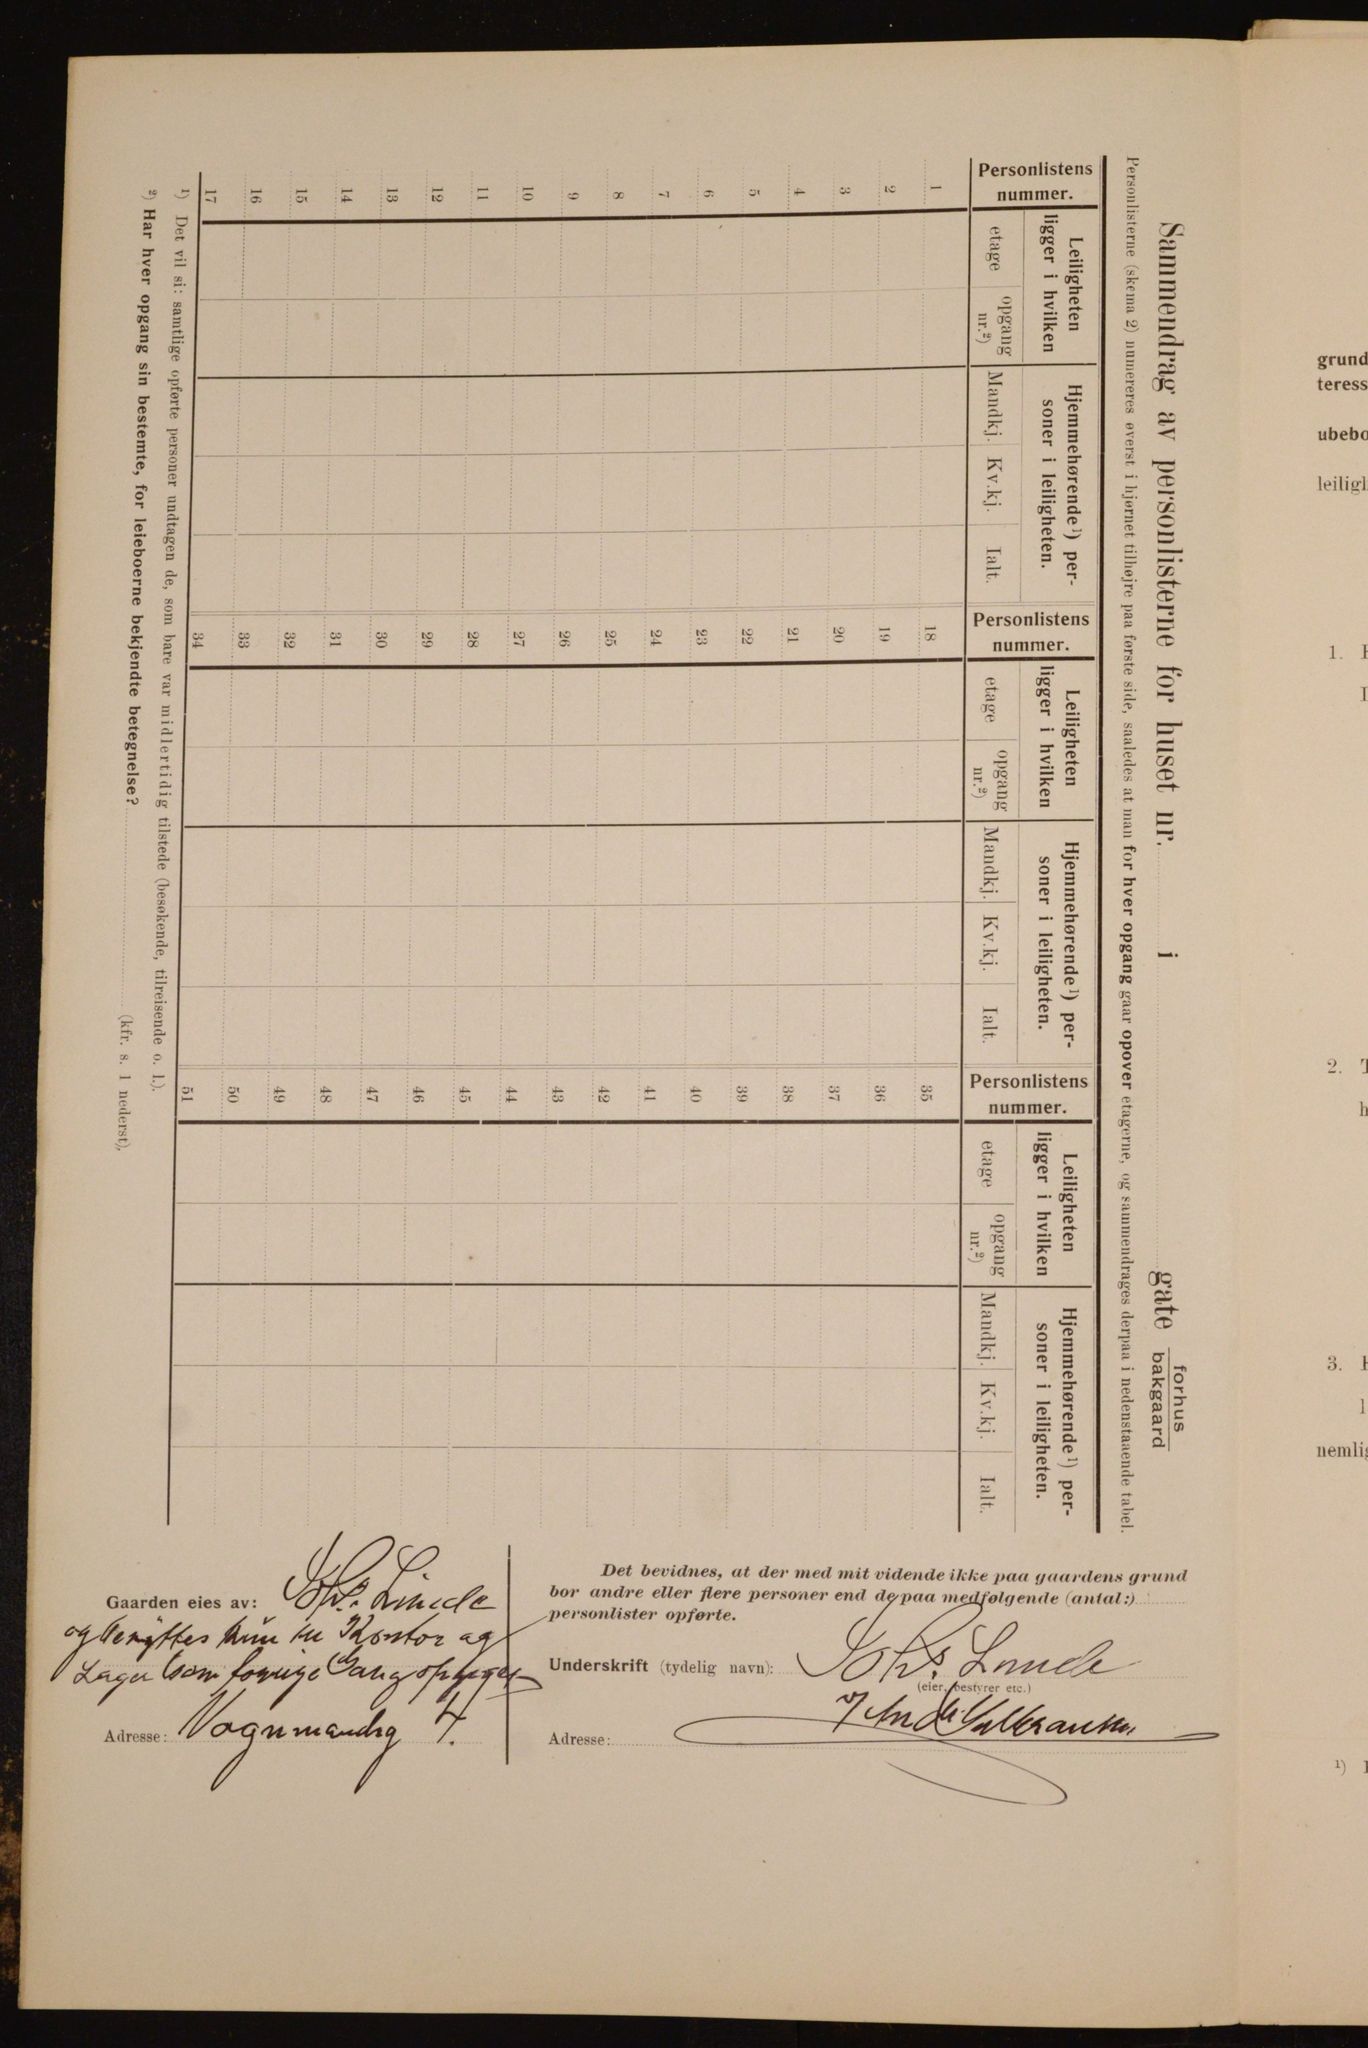 Sammendrag av personlisterne for huset nr. i gate forhus
bakgaard
Personlisterne (skema 2) numereres øverst i hjørnet tilhøjre paa første side, saaledes at man for hver opgang gaar opover etagerne, og sammendrages derpaa i nedenstaaende tabel.
Personlistens
nummer.
Leiligheten
ligger i hvilken
etage
opgang
nr.²)
Hjemmehørende¹) per-
soner i leiligheten.
Mandkj.
Kv.kj.
Ialt.
Personlistens
nummer.
Leiligheten
ligger i hvilken
etage
opgang
nr.²)
Hjemmehørende¹) per-
soner i leiligheten.
Mandkj.
Kv.kj.
Ialt.
Personlistens
nummer.
Leiligheten
ligger i hvilken
etage
opgang
nr.²)
Hjemmehørende¹) per-
soner i leiligheten.
Mandkj.
Kv.kj.
Ialt.
1 18 35
2 19 36
3 20 37
4 21 38
5 22 39
6 23 40
7 24 41
8 25 42
9 26 43
10 27 44
11 28 45
12 29 46
13 30 47
14 31 48
15 32 49
16 33 50
17 34 51
¹) Det vil si: samtlige opførte personer undtagen de, som bare var midlertidig tilstede (besøkende, tilreisende o. l.).
²) Har hver opgang sin bestemte, for leieboerne bekjendte betegnelse? (kfr. s. 1 nederst).
Gaarden eies av: Johs. Linde
og benyttes kun til Kontor og
Lager
Adresse: Vognmandsg 4.
Det bevidnes, at der med mit vidende ikke paa gaardens grund
bor andre eller flere personer end de paa medfølgende (antal:)
personlister opførte.
Underskrift (tydelig navn): Johs. Linde
(eier, bestyrer etc.)
Adresse:
grund
teress
ubebo
leiligh
1.
2.
h
3.
l
nemlig
¹)